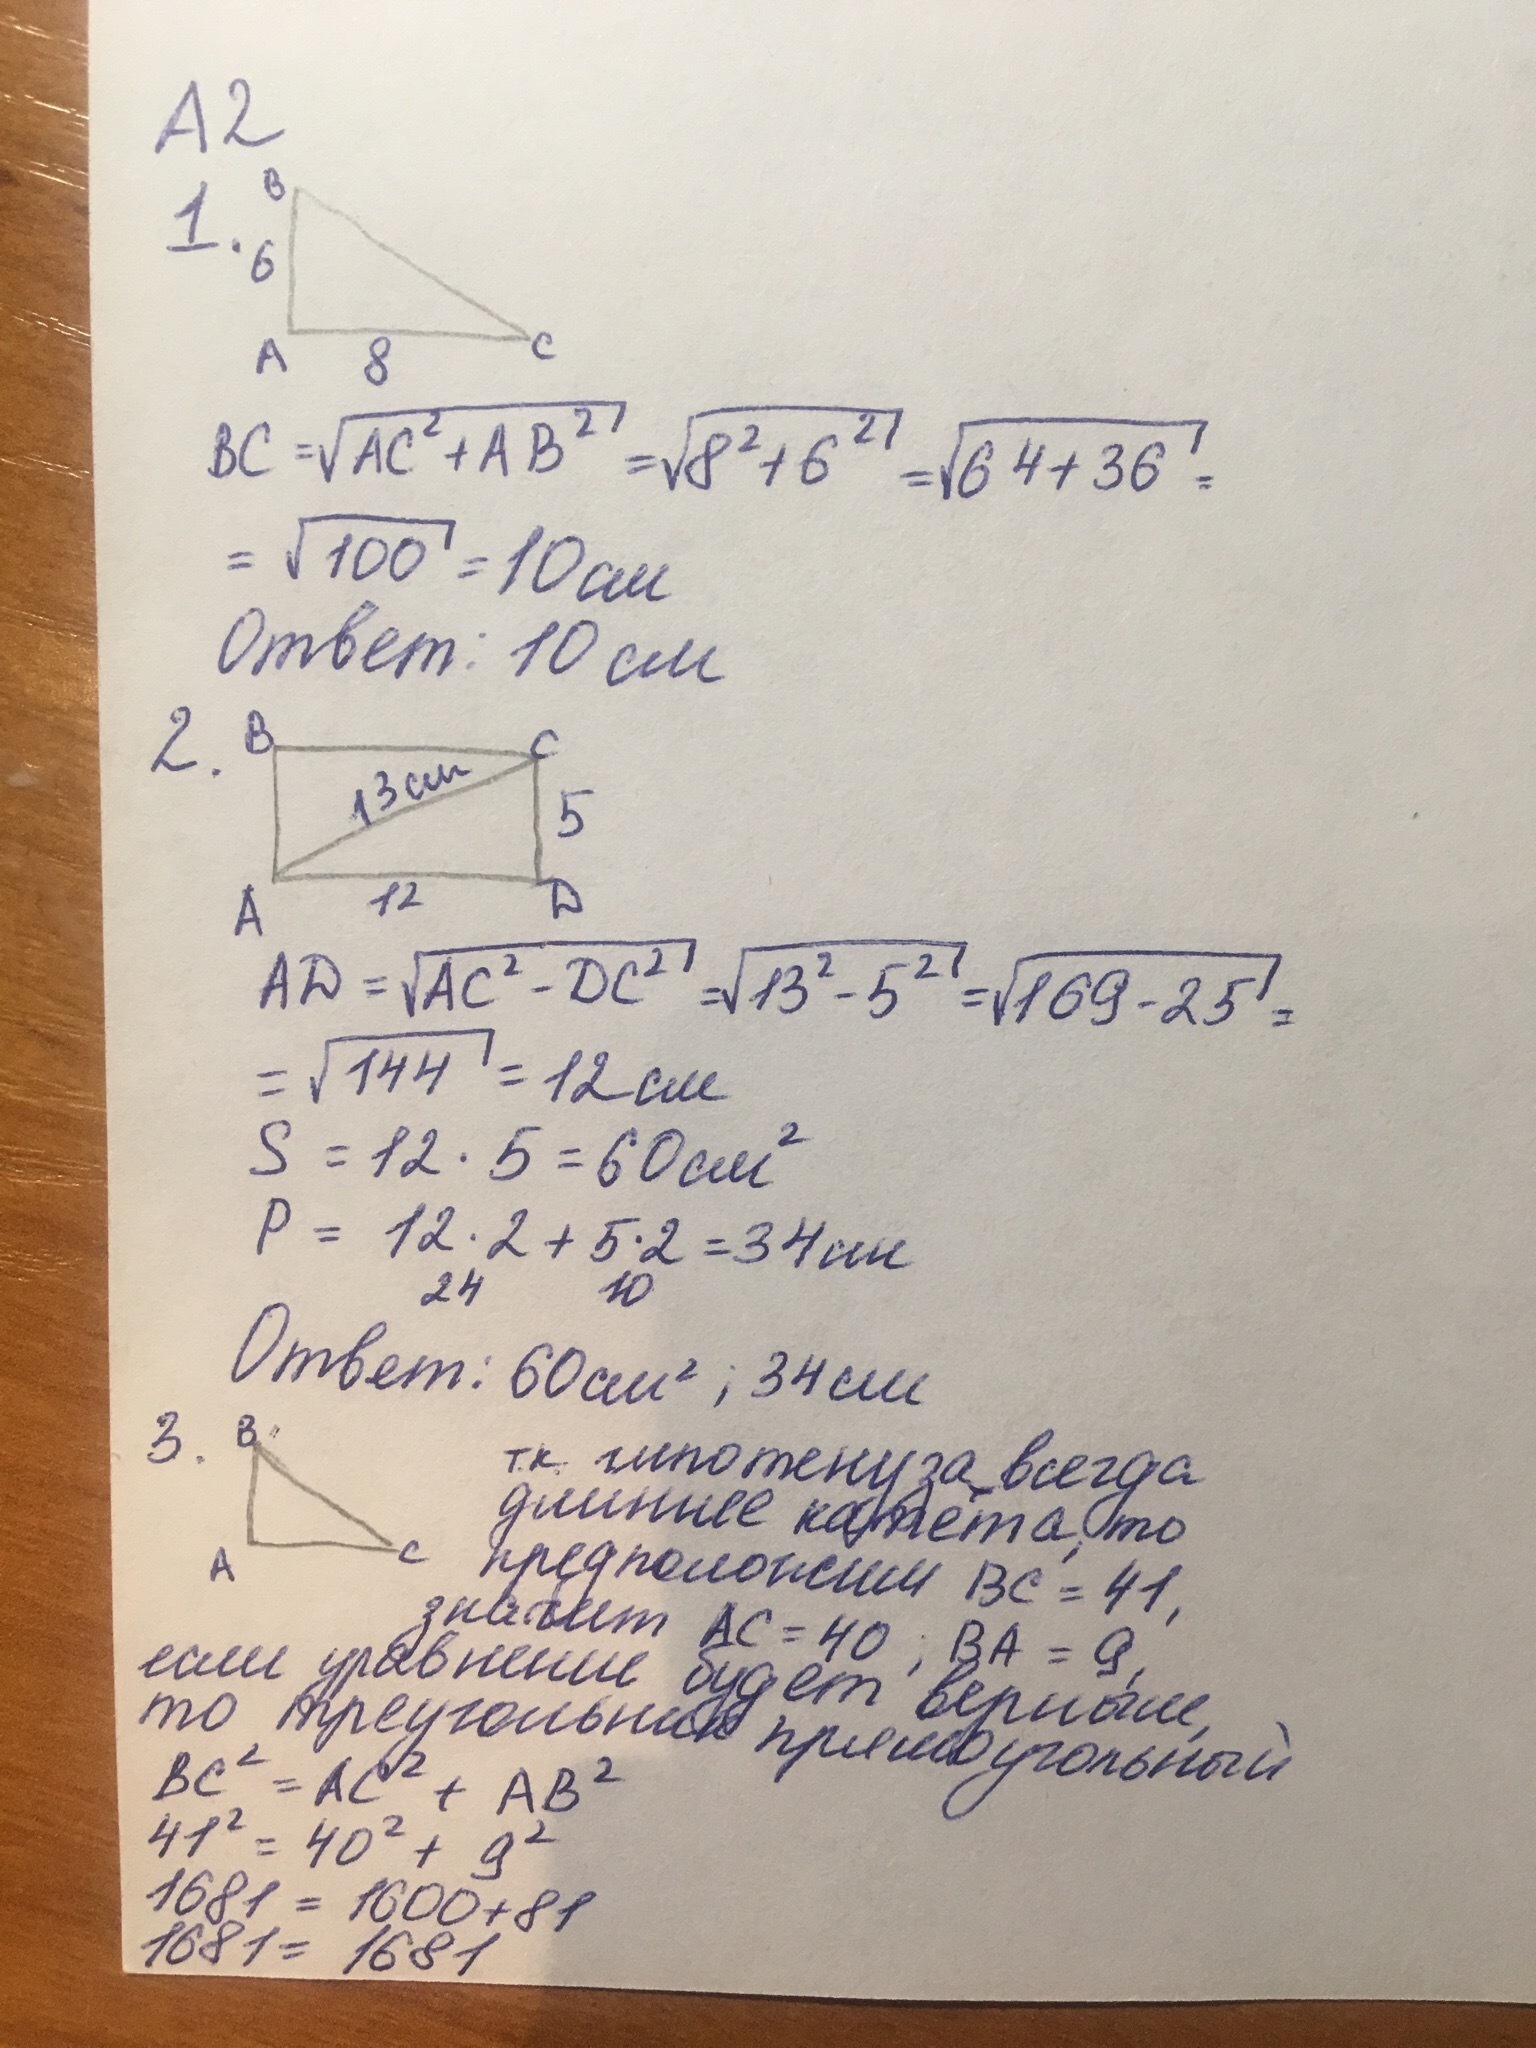 A2
1.
B
6
A 8 C
BC = √AC² + AB² = √8² + 6² = √64 + 36 =
= √100 = 10 см
Ответ: 10 см
2.
B C
13 см
5
A 12 D
AD = √AC² - DC² = √13² - 5² = √169 - 25 =
= √144 = 12 см
S = 12 · 5 = 60 см²
P = 12 · 2 + 5 · 2 = 34 см
24 10
Ответ: 60 см² ; 34 см
3.
B
A C
т.к. гипотенуза всегда
длиннее катета, то
предположим BC = 41,
значит AC = 40 ; BA = 9,
если уравнение будет верным,
то треугольник прямоугольный
BC² = AC² + AB²
41² = 40² + 9²
1681 = 1600 + 81
1681 = 1681